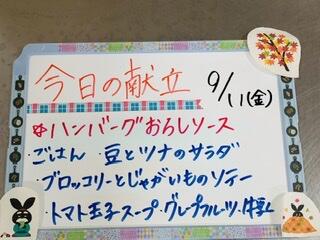 今日の献立 9/11(金)
✿ハンバーグおろしソース
・ごはん ・豆とツナのサラダ
・ブロッコリーとじゃがいものソテー
・トマト玉子スープ・グレープフルーツ・牛乳